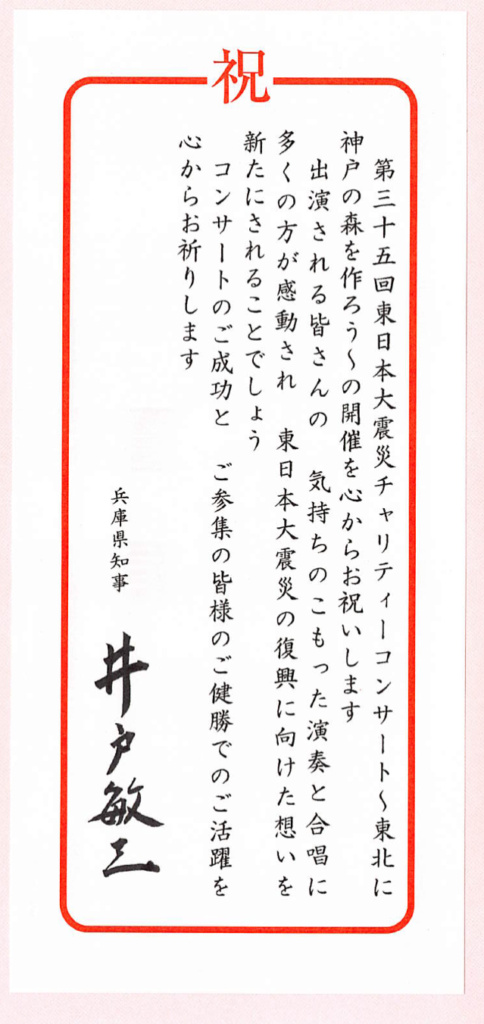 祝
第三十五回東日本大震災チャリティーコンサート～東北に
神戸の森を作ろう～の開催を心からお祝いします
出演される皆さんの　気持ちのこもった演奏と合唱に
多くの方が感動され　東日本大震災の復興に向けた想いを
新たにされることでしょう
コンサートのご成功と　ご参集の皆様のご健勝でのご活躍を
心からお祈りします
兵庫県知事
井戸敏三